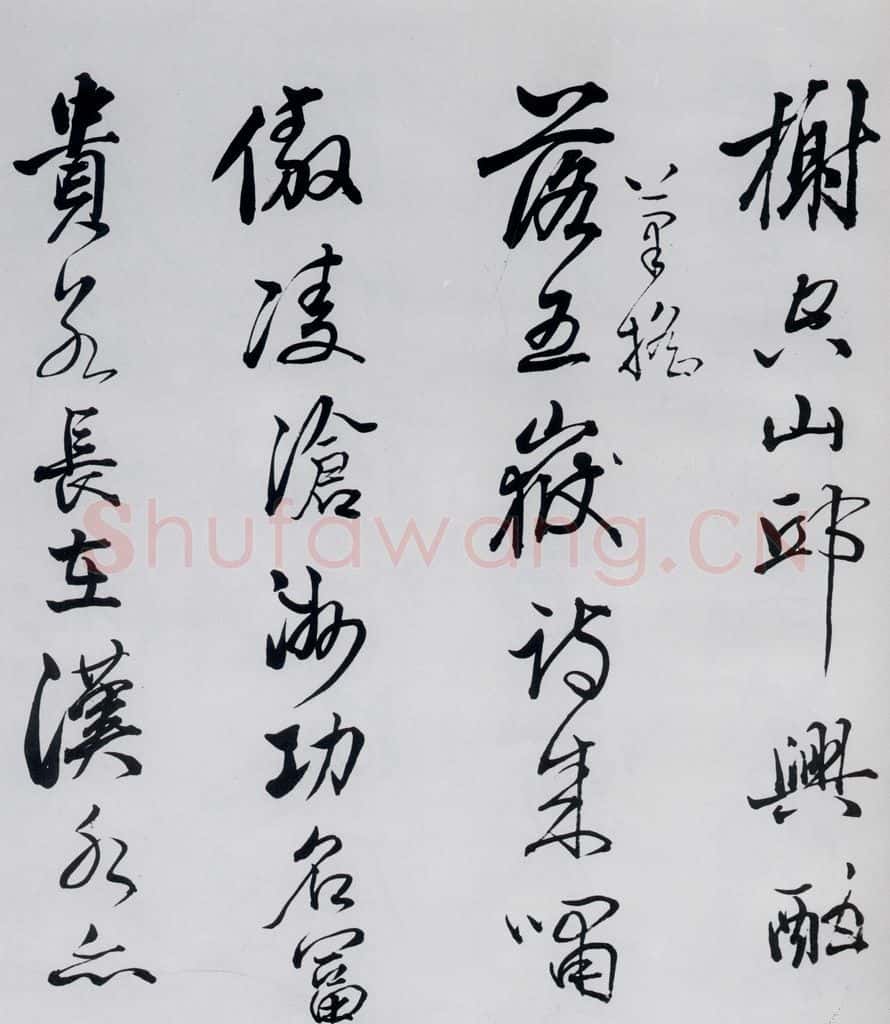 榭空山邱興酣
筆搖
落五嶽詩成嘯
傲凌滄洲功名富
貴若長在漢水亦
Shufawang.CN